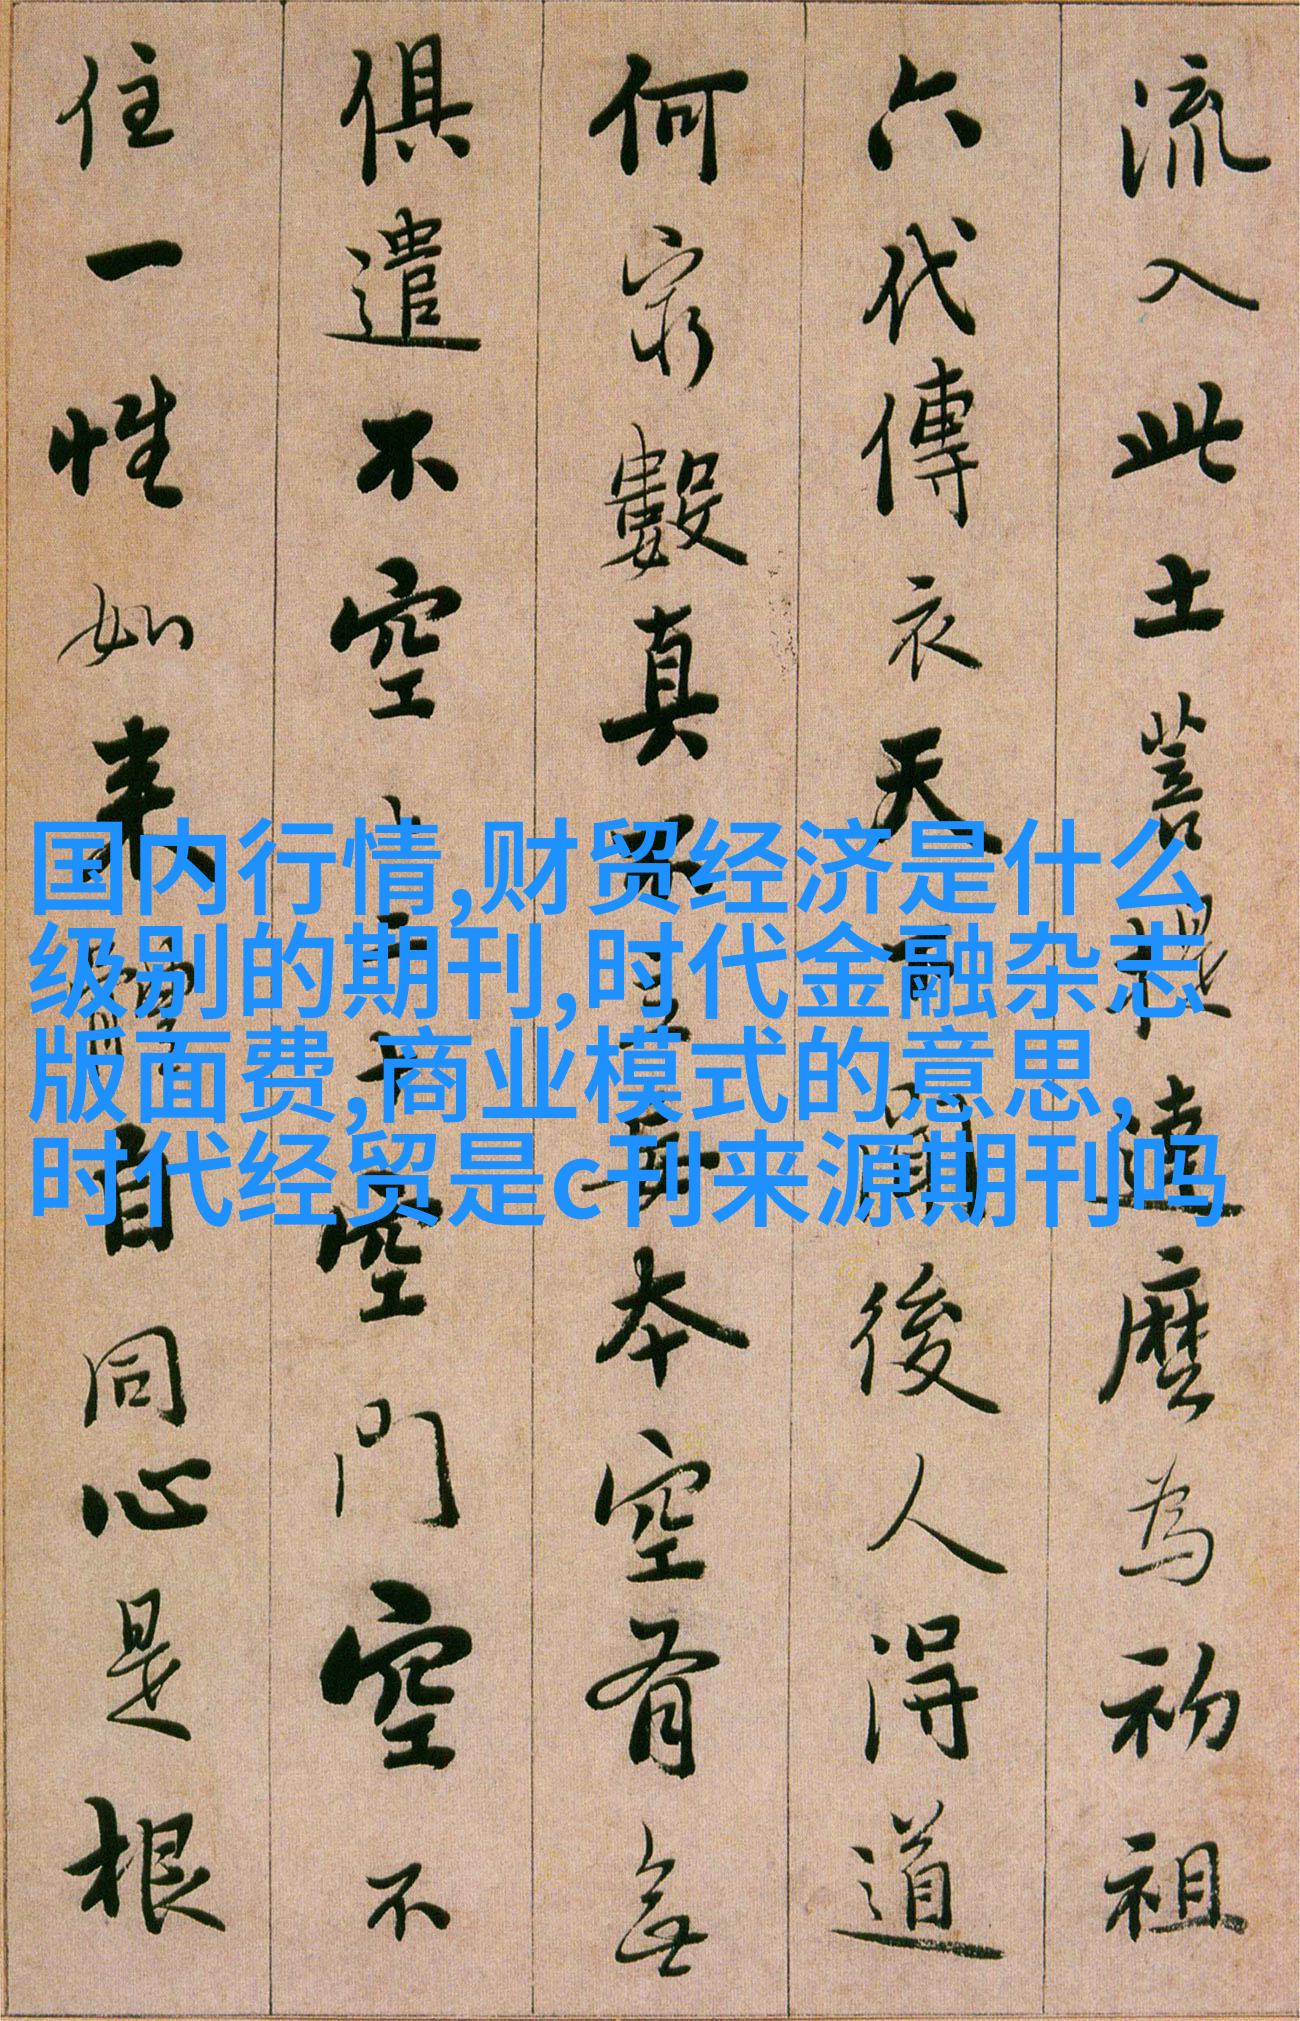 流入此土菩提達麼為初祖
六代傳衣天下聞後人得道
何窮數真不立妄本空有無
俱遣不空空門空不
住一性如來體自同心是根
国内行情,财贸经济是什么
级别的期刊,时代金融杂志
版面费,商业模式的意思,
时代经贸是c刊来源期刊吗